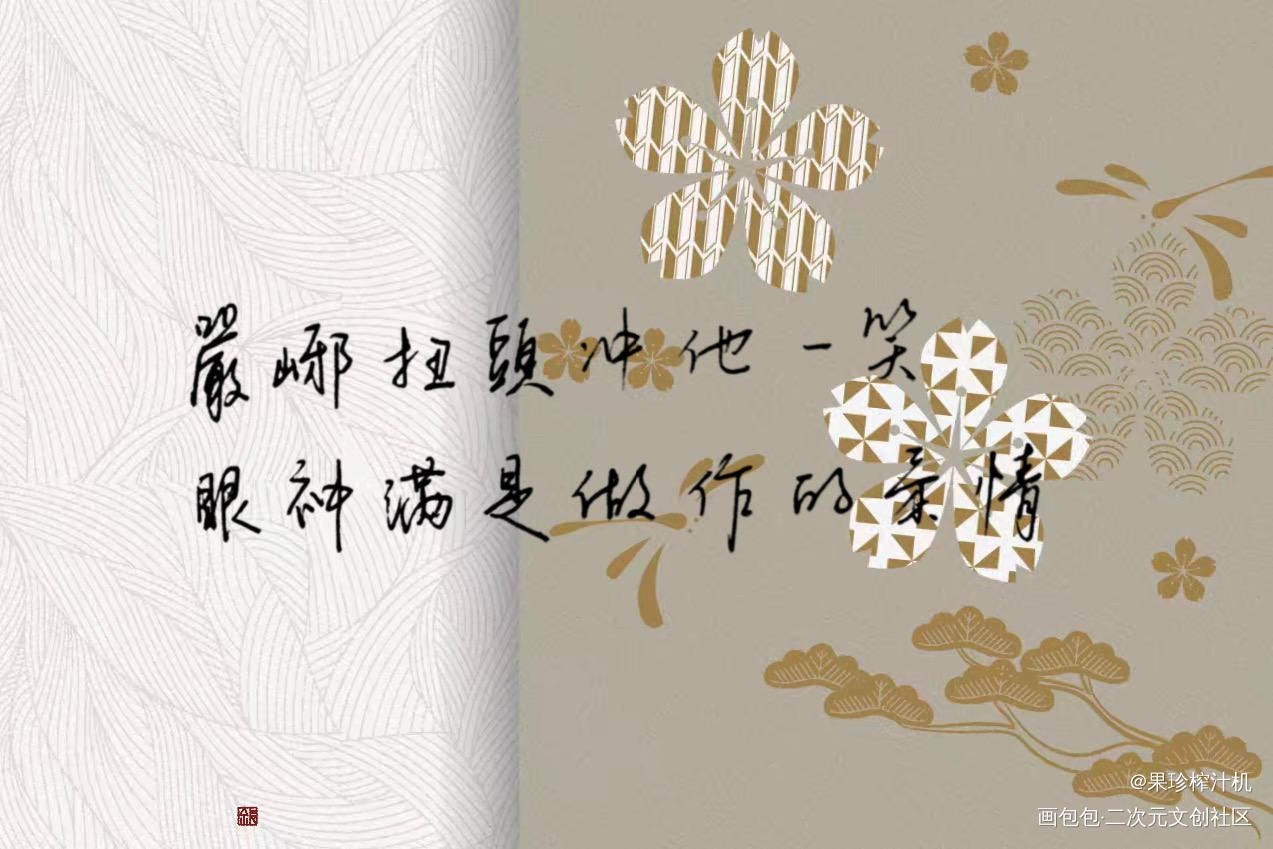 嚴峫扭頭冲他一笑
眼神满是做作的柔情
@果珍榨汁机
画包包·二次元文创社区